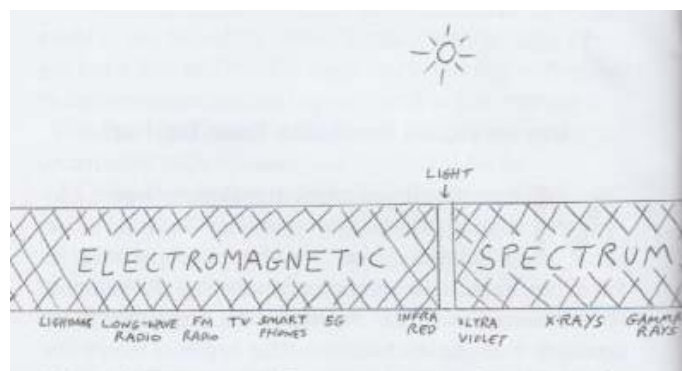 LIGHT
ELECTROMAGNETIC SPECTRUM
LIGHTNING LONG-WAVE RADIO FM RADIO TV SMART PHONES 5G INFRA RED ULTRA VIOLET X-RAYS GAMMA RAYS